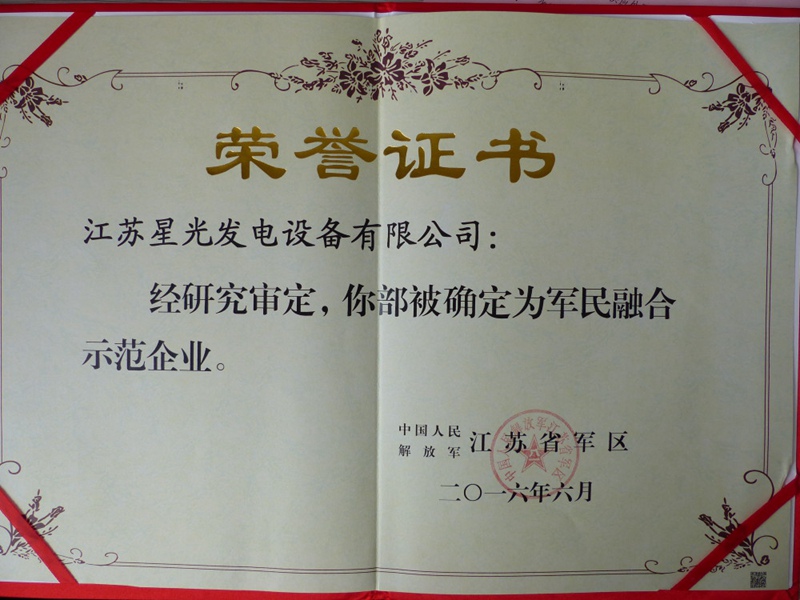 荣誉证书
江苏星光发电设备有限公司:
经研究审定,你部被确定为军民融合
示范企业。
中国人民
解放军 江苏省军区
二〇一六年六月
中国人民解放军江苏省军区